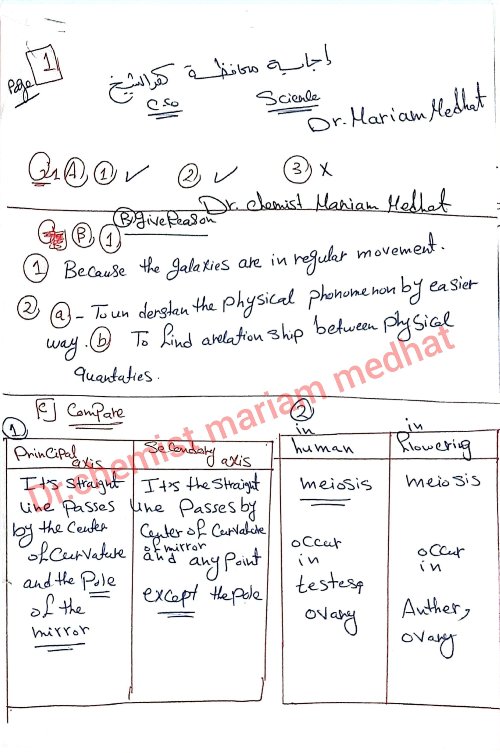 Page 1
اجابة محافظة كفر الشيخ
Science
Dr. Mariam Medhat
Q1 A, 1 ✓ 2 ✓ 3 X
Dr. chemist Mariam Medhat
B give Reason
B, 1
1 Because the galaxies are in regular movement.
2 a - To un derstan the physical phonomenon by easier
way. b To find arelation ship between physical
quantaties.
C] Compare
1
Principal axis
Secondary axis
It's straight
line Passes
by the Center
of Curvature
and the Pole
of the
mirror
It's the straight
line Passes by
Center of Curvature
of mirror
and any point
except the pole
2
in human
in flowering
meiosis
occur
in
testes,
ovary
meiosis
occur
in
Anther,
ovary
Dr.chemist mariam medhat